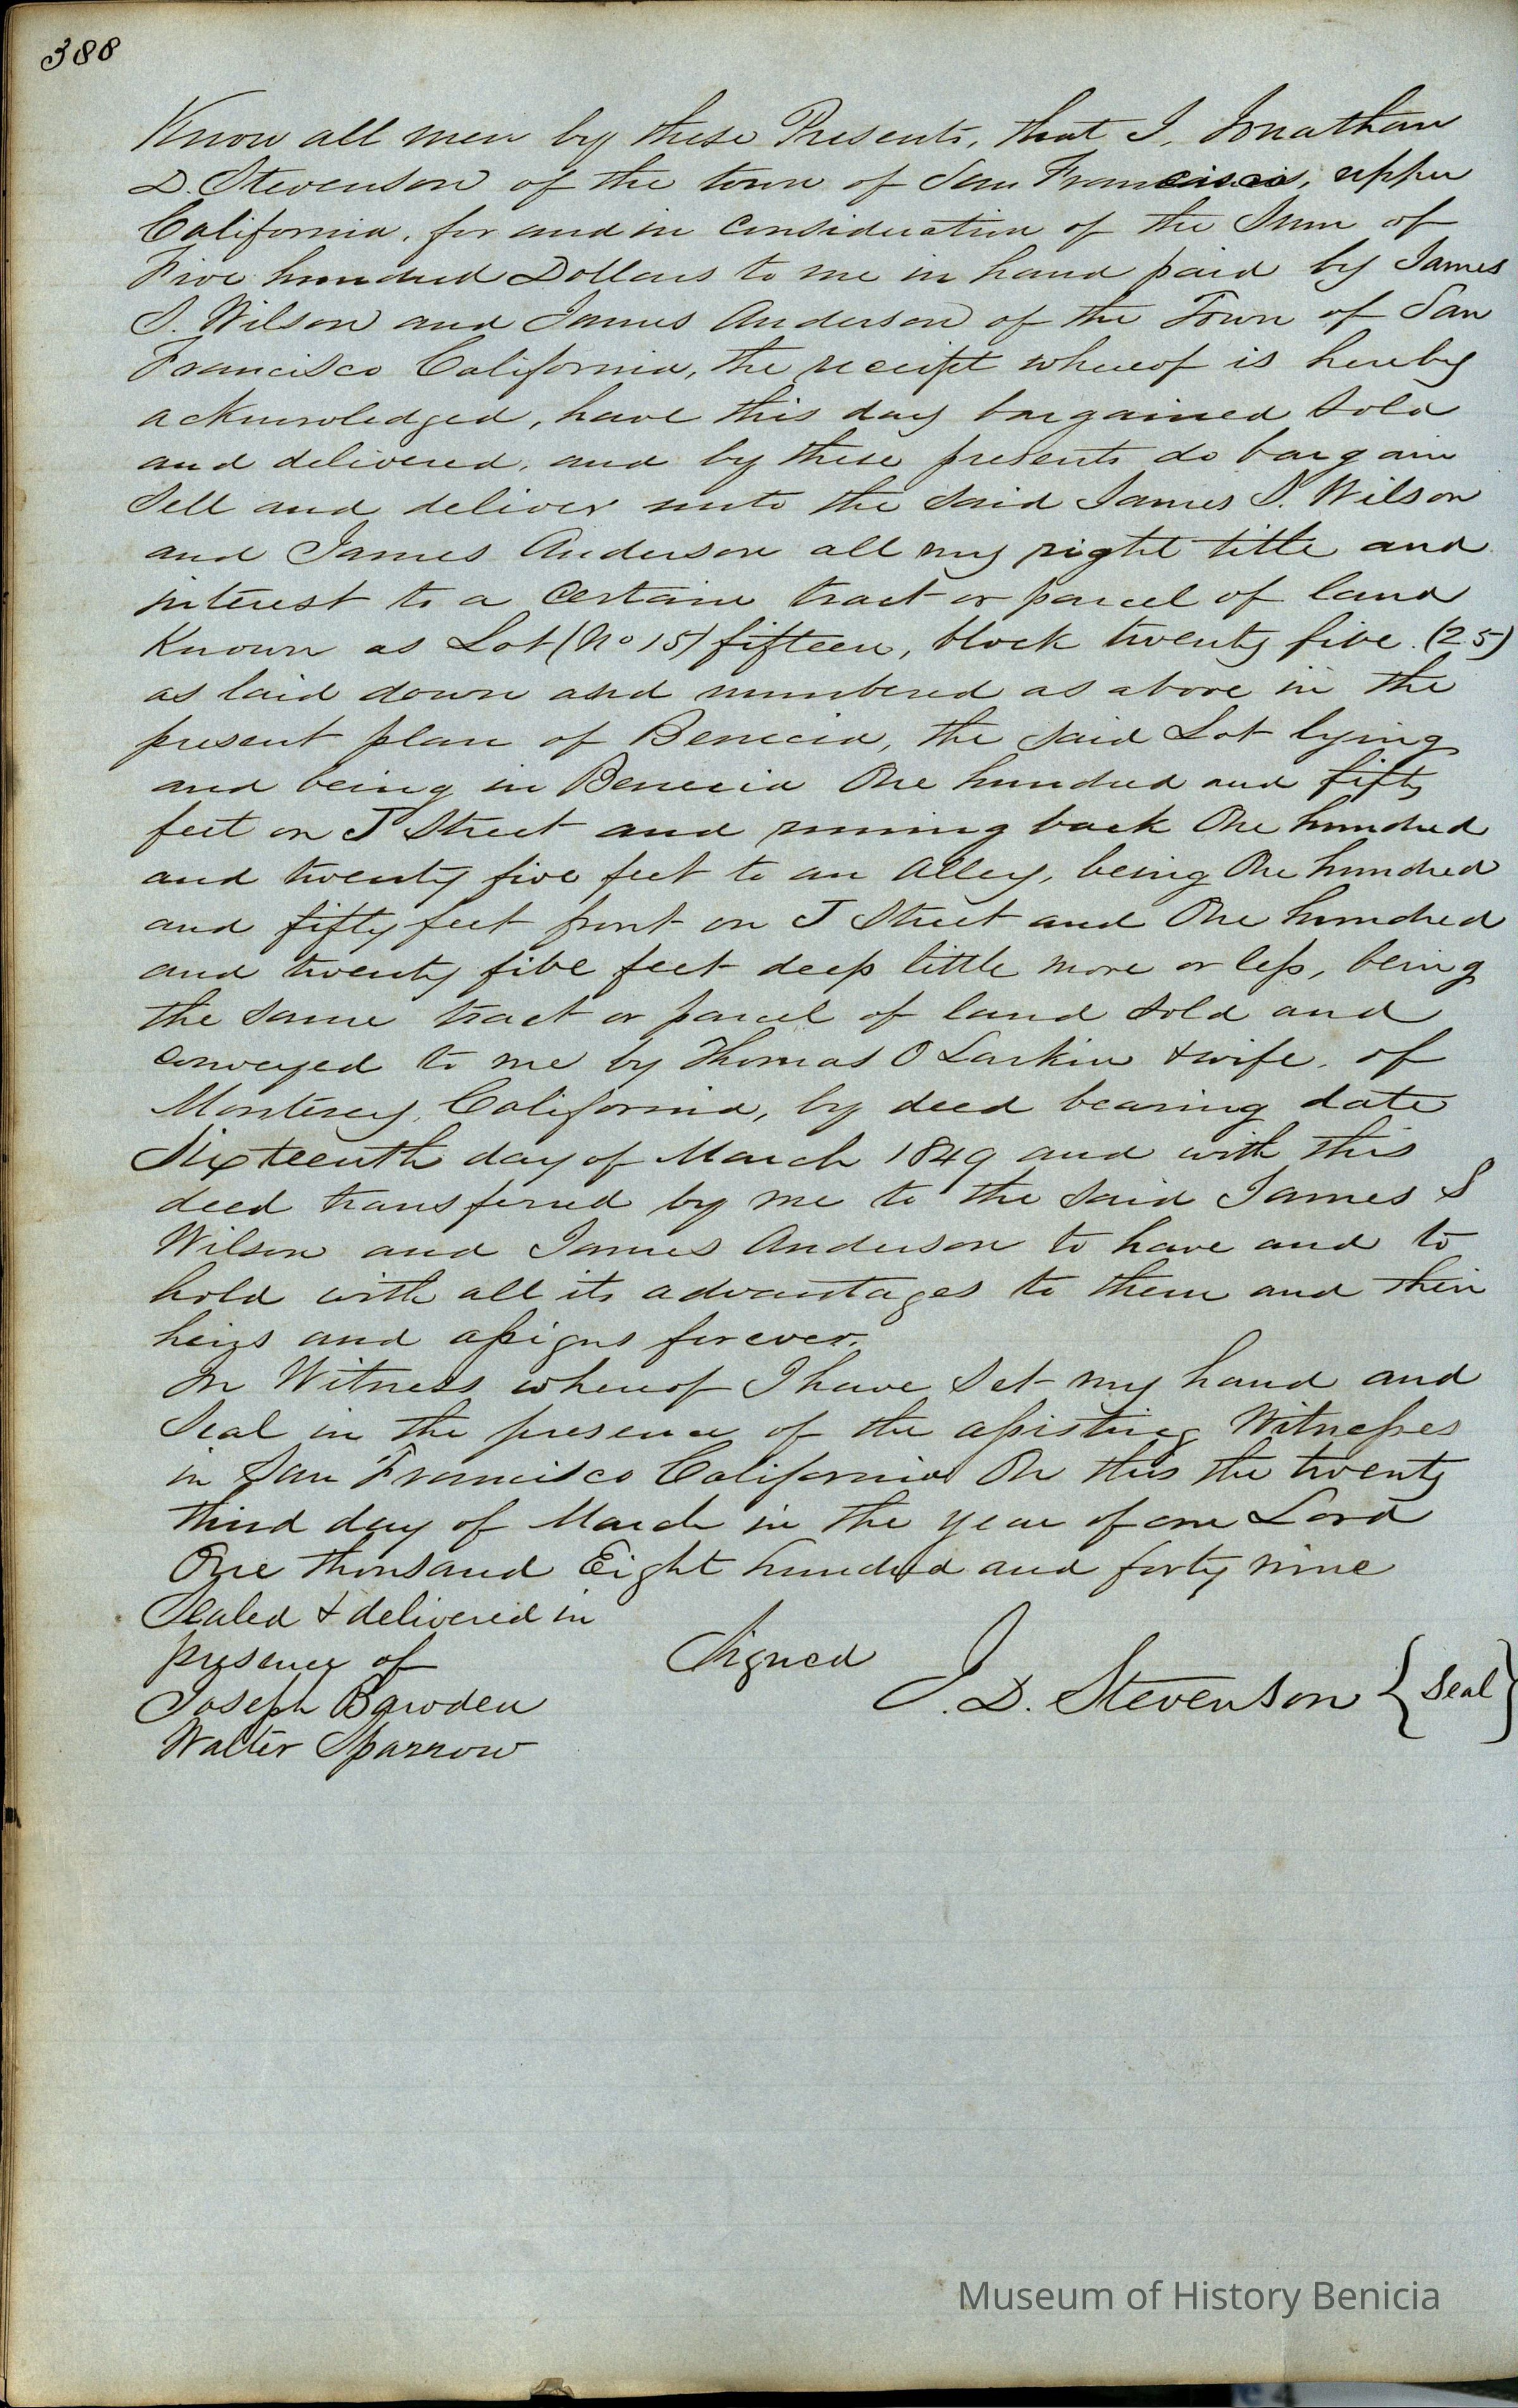 388
Know all men by these Presents, that I, Jonathan
D. Stevenson of the town of San Francisco, upper
California, for and in consideration of the Sum of
Five hundred Dollars to me in hand paid by James
S. Wilson and James Anderson of the Town of San
Francisco California, the receipt whereof is hereby
acknowledged, have this day bargained sold
and delivered, and by these presents do bargain
sell and deliver unto the said James S. Wilson
and James Anderson all my right title and
interest to a certain tract or parcel of land
Known as Lot (No 15) fifteen, block twenty five (25)
as laid down and numbered as above in the
present plan of Benicia, the said Lot lying
and being in Benecia One hundred and fifty
feet on J Street and running back One hundred
and twenty five feet to an Alley, being One hundred
and fifty feet front on J Street and One hundred
and twenty five feet deep little more or less, being
the same tract or parcel of land sold and
conveyed to me by Thomas O Larkin & wife, of
Monterey, California, by deed bearing date
Sixteenth day of March 1849 and with this
deed transferred by me to the said James S
Wilson and James Anderson to have and to
hold with all its advantages to them and their
heirs and assigns forever.
In Witness whereof I have set my hand and
Seal in the presence of the assisting Witnesses
in San Francisco California On this the twenty
third day of March in the year of our Lord
One thousand Eight hundred and forty nine
Sealed & delivered in
presence of
Signed
J. D. Stevenson {Seal}
Joseph Bawden
Walter Sparrow
Museum of History Benicia